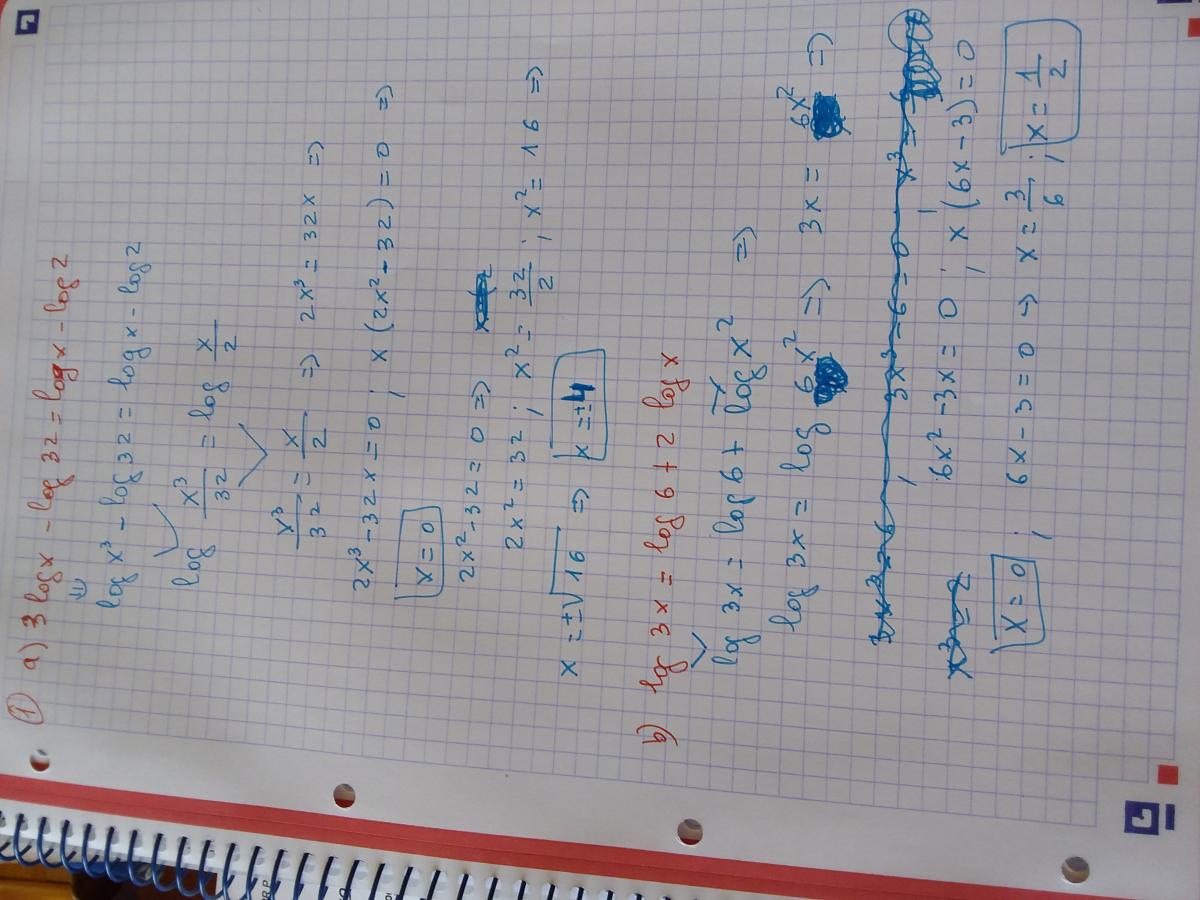 ① a) 3 log x - log 32 = log x - log 2
⇓
log x³ - log 32 = log x - log 2
log x³/32 = log x/2
x³/32 = x/2 => 2x³ = 32x =>
2x³ - 32x = 0 ; x (2x² - 32) = 0 =>
x = 0
2x² - 32 = 0 =>
2x² = 32 ; x² = 32/2 ; x² = 16 =>
x = ±√16 => x = ±4
b) log 3x = log 6 + 2 log x
log 3x = log 6 + log x² =>
log 3x = log 6x² => 3x = 6x² =>
6x² - 3x = 0 ; x (6x - 3) = 0
x = 0 ; 6x - 3 = 0 → x = 3/6 ; x = 1/2